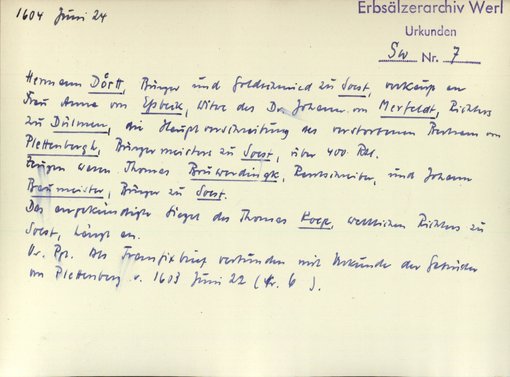 1604 Juni 24
Erbsälzerarchiv Werl
Urkunden
Sw Nr. 7
Hermann Dörtt, Bürger und Goldschmied zu Soest, verkauft an
Frau Anna von Espbeck, Witwe des Dr. Johann von Merfeldt, Richters
zu Dülmen, die Hauptverschreibung des verstorbenen Bertram von
Plettenbergh, Bürgermeisters zu Soest, über 400 Rtl.
Zeugen waren Thomas Bruwerdingk, Rentschreiber, und Johann
Baumeister, Bürger zu Soest.
Das angekündigte Siegel des Thomas Koep, weltlichen Richters zu
Soest, hängt an.
Or. Pgt. Als Transfixbrief verbunden mit Urkunde der Gebrüder
von Plettenberg v. 1603 Juni 22 (Nr. 6).